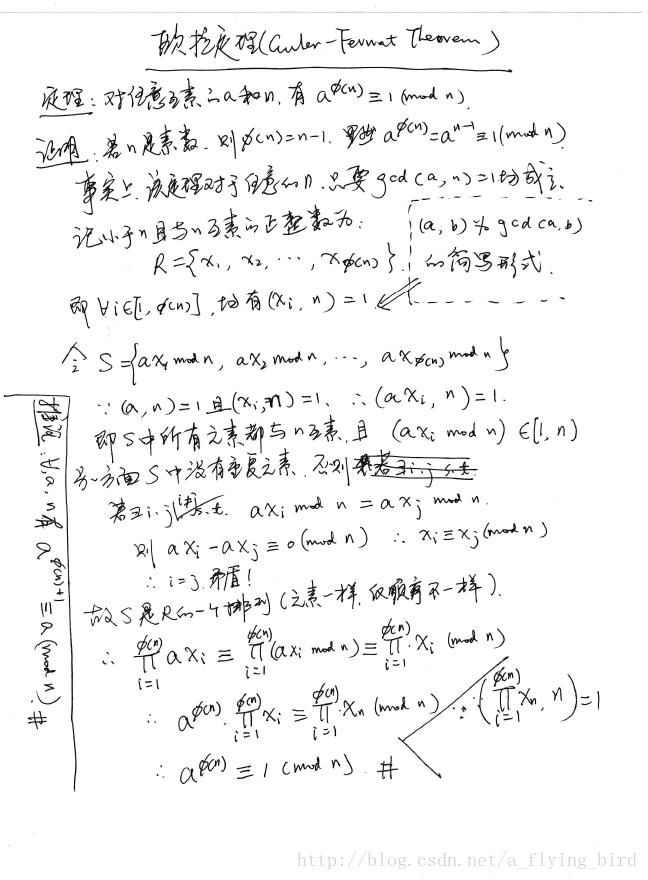 欧拉定理(Euler-Fermat Theorem)
定理: 对任意互素的a和n, 有 a^φ(n) ≡ 1 (mod n).
证明: 若n是素数, 则φ(n)=n-1, a^φ(n) = a^(n-1) ≡ 1(mod n)
事实上, 该定理对于任意的n, 只要gcd(a, n)=1均成立.
记小于n且与n互素的正整数为:
R={x₁, x₂, ⋯, x_φ(n)}.
(a, b)为gcd(a,b)
的简写形式.
即∀i∈[1, φ(n)], 均有(xᵢ, n) = 1.
令 S={ax₁ mod n, ax₂ mod n, ⋯, ax_φ(n) mod n}
∵ (a, n)=1 且(xᵢ, n)=1, ∴ (axᵢ, n)=1.
即S中所有元素都与n互素, 且 (axᵢ mod n) ∈[1, n)
另一方面S中没有重复元素, 否则
若∃i, j, i≠j s.t. axᵢ mod n = axⱼ mod n.
则 axᵢ - axⱼ ≡ 0 (mod n) ∴ xᵢ ≡ xⱼ (mod n)
∴ i=j, 矛盾!
故S是R的一个排列(元素一样, 仅顺序不一样).
∴ ∏_{i=1}^{φ(n)} axᵢ ≡ ∏_{i=1}^{φ(n)} (axᵢ mod n) ≡ ∏_{i=1}^{φ(n)} xᵢ (mod n)
∴ a^φ(n) · ∏_{i=1}^{φ(n)} xᵢ ≡ ∏_{i=1}^{φ(n)} xₙ (mod n) ∵ (∏_{i=1}^{φ(n)} xₙ, n) = 1
∴ a^φ(n) ≡ 1 (mod n). #
推论: ∀a, n 有 a^(φ(n)+1) ≡ a (mod n). #
http://blog.csdn.net/a_flying_bird